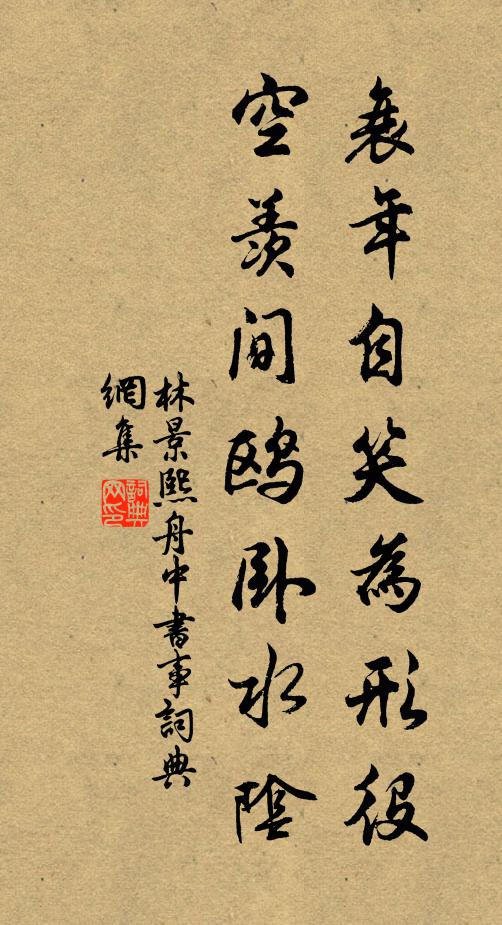 衰年自笑為形役
空羨閒鷗臥水陰
林景熙舟中書事詞典
網集
詞典
网印